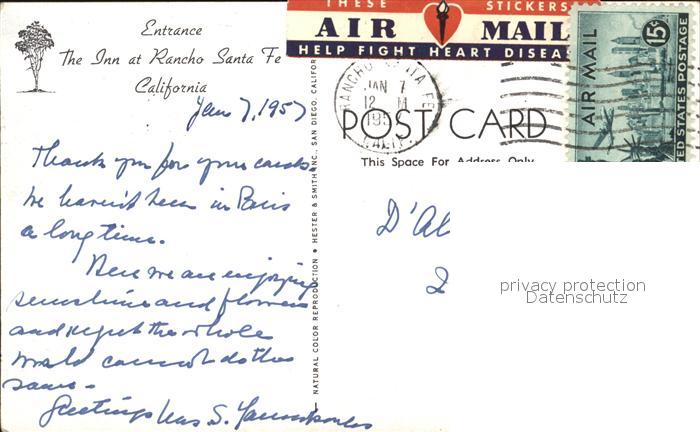 THESE STICKERS
AIR MAIL
HELP FIGHT HEART DISEAS
Entrance
The Inn at Rancho Santa Fe
California
Jan 7, 1957
RANCHO SANTA FE
JAN 7
12 M
195
CALIF.
15¢
AIR MAIL
UNITED STATES POSTAGE
POST CARD
This Space For Address Only
Thank you for your cards.
We haven't been in Paris
a long time.
Here we are enjoying
sunshine and flowers
and regret the whole
world cannot do the
same.
Greetings Mrs S.
NATURAL COLOR REPRODUCTION • HESTER & SMITH INC. SAN DIEGO, CALIFOR
D'Al
2
privacy protection
Datenschutz